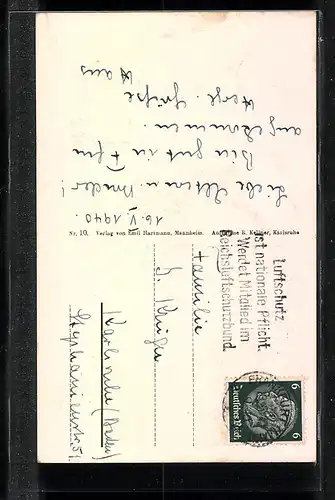 16. V. 1940.
Liebe Eltern u. Bruder!
Bin gut in
angekommen.
Herzl. Grüße
aus
Nr. 10. Verlag von Emil Hartmann, Mannheim. Aufnahme R. Kellner, Karlsruhe
Luftschutz
ist nationale Pflicht.
Werdet Mitglied im
Reichsluftschutzbund.
Deutsches Reich
6
6
Familie
Karlsruhe (Baden)
Stephanienstr. 51.